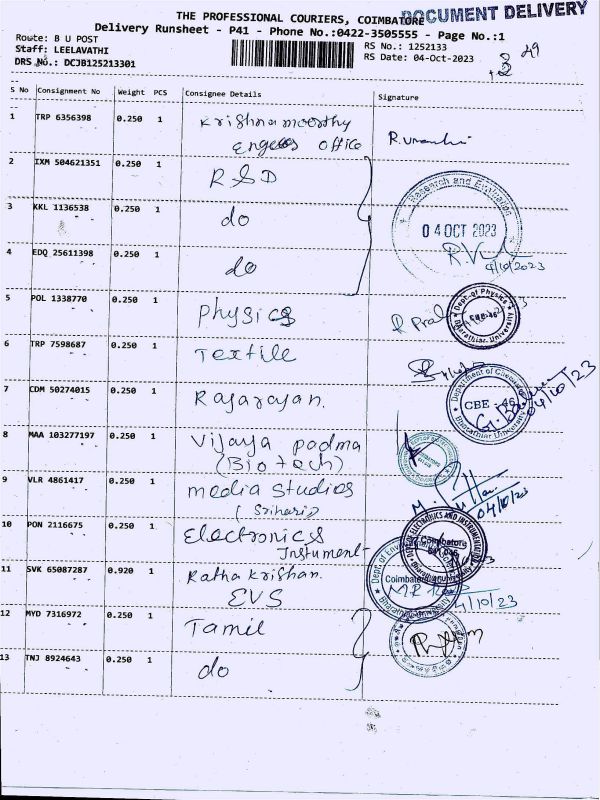 DOCUMENT DELIVERY
THE PROFESSIONAL COURIERS, COIMBATORE
Delivery Runsheet - P41 - Phone No.:0422-3505555 - Page No.:1
Route: B U POST
Staff: LEELAVATHI
DRS No.: DCJB125213301
RS No.: 1252133
RS Date: 04-Oct-2023
S No Consignment No Weight PCS Consignee Details Signature
1 TRP 6356398 0.250 1 Krishnamoorthy
office
2 IXM 504621351 0.250 1 R & D
3 KKL 1136538 0.250 1 do
4 EDQ 25611398 0.250 1 do
Research and Evaluation
04 OCT 2023
4/10/2023
5 POL 1338770 0.250 1 Physics
Dept. of Physics
Bharathiar University
6 TRP 7598687 0.250 1 Textile
7 CDM 50274015 0.250 1 Rajarajan.
Department of Chemistry
CBE - 46
Bharathiar University
04/10/23
8 MAA 103277197 0.250 1 Vijaya padma
(Biotech)
9 VLR 4861417 0.250 1 media Studies
(Srihari)
04/10/23
10 PON 2116675 0.250 1 Electronics
Instument
ELECTRONICS AND INSTRUMENTATION
Coimbatore
11 SVK 65087287 0.920 1 Ratha Krishan.
EVS
Dept. of
Coimbatore
Bharathiar University
4/10/23
12 MYD 7316972 0.250 1 Tamil
13 TNJ 8924643 0.250 1 do